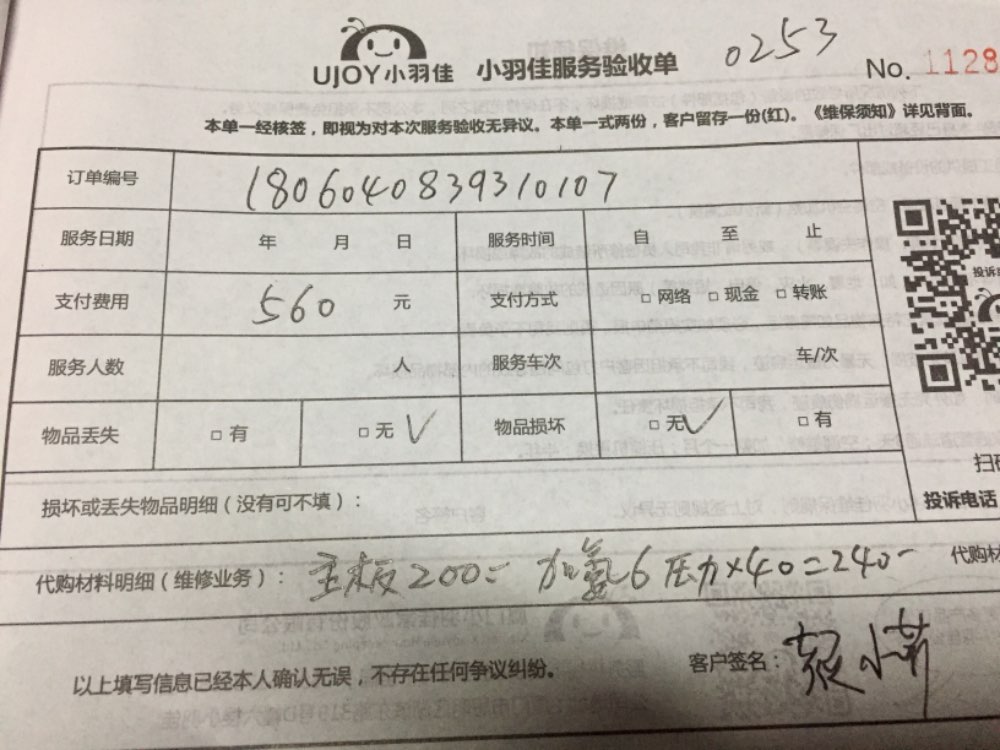 UJOY小羽佳 小羽佳服务验收单 0253 No. 1128
本单一经核签，即视为对本次服务验收无异议。本单一式两份，客户留存一份(红)。《维保须知》详见背面。
订单编号 1806040839310107
服务日期 年 月 日 服务时间 自 至 止
支付费用 560 元 支付方式 □ 网络 □ 现金 □ 转账
服务人数 人 服务车次 车/次
物品丢失 □ 有 □ 无 √ 物品损坏 □ 无 √ □ 有
损坏或丢失物品明细（没有可不填）：
投诉电话
代购材料明细（维修业务）： 主板200- 加氨6压力×40=240-
以上填写信息已经本人确认无误，不存在任何争议纠纷。 客户签名：